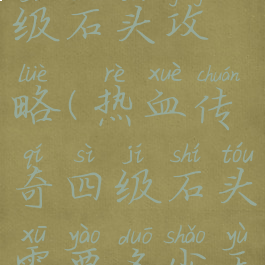 级石头攻
lüè rè xuè chuán
略(热血传
qí sì jí shí tóu
奇四级石头
xū yào duō shǎo yù
需要多少玉